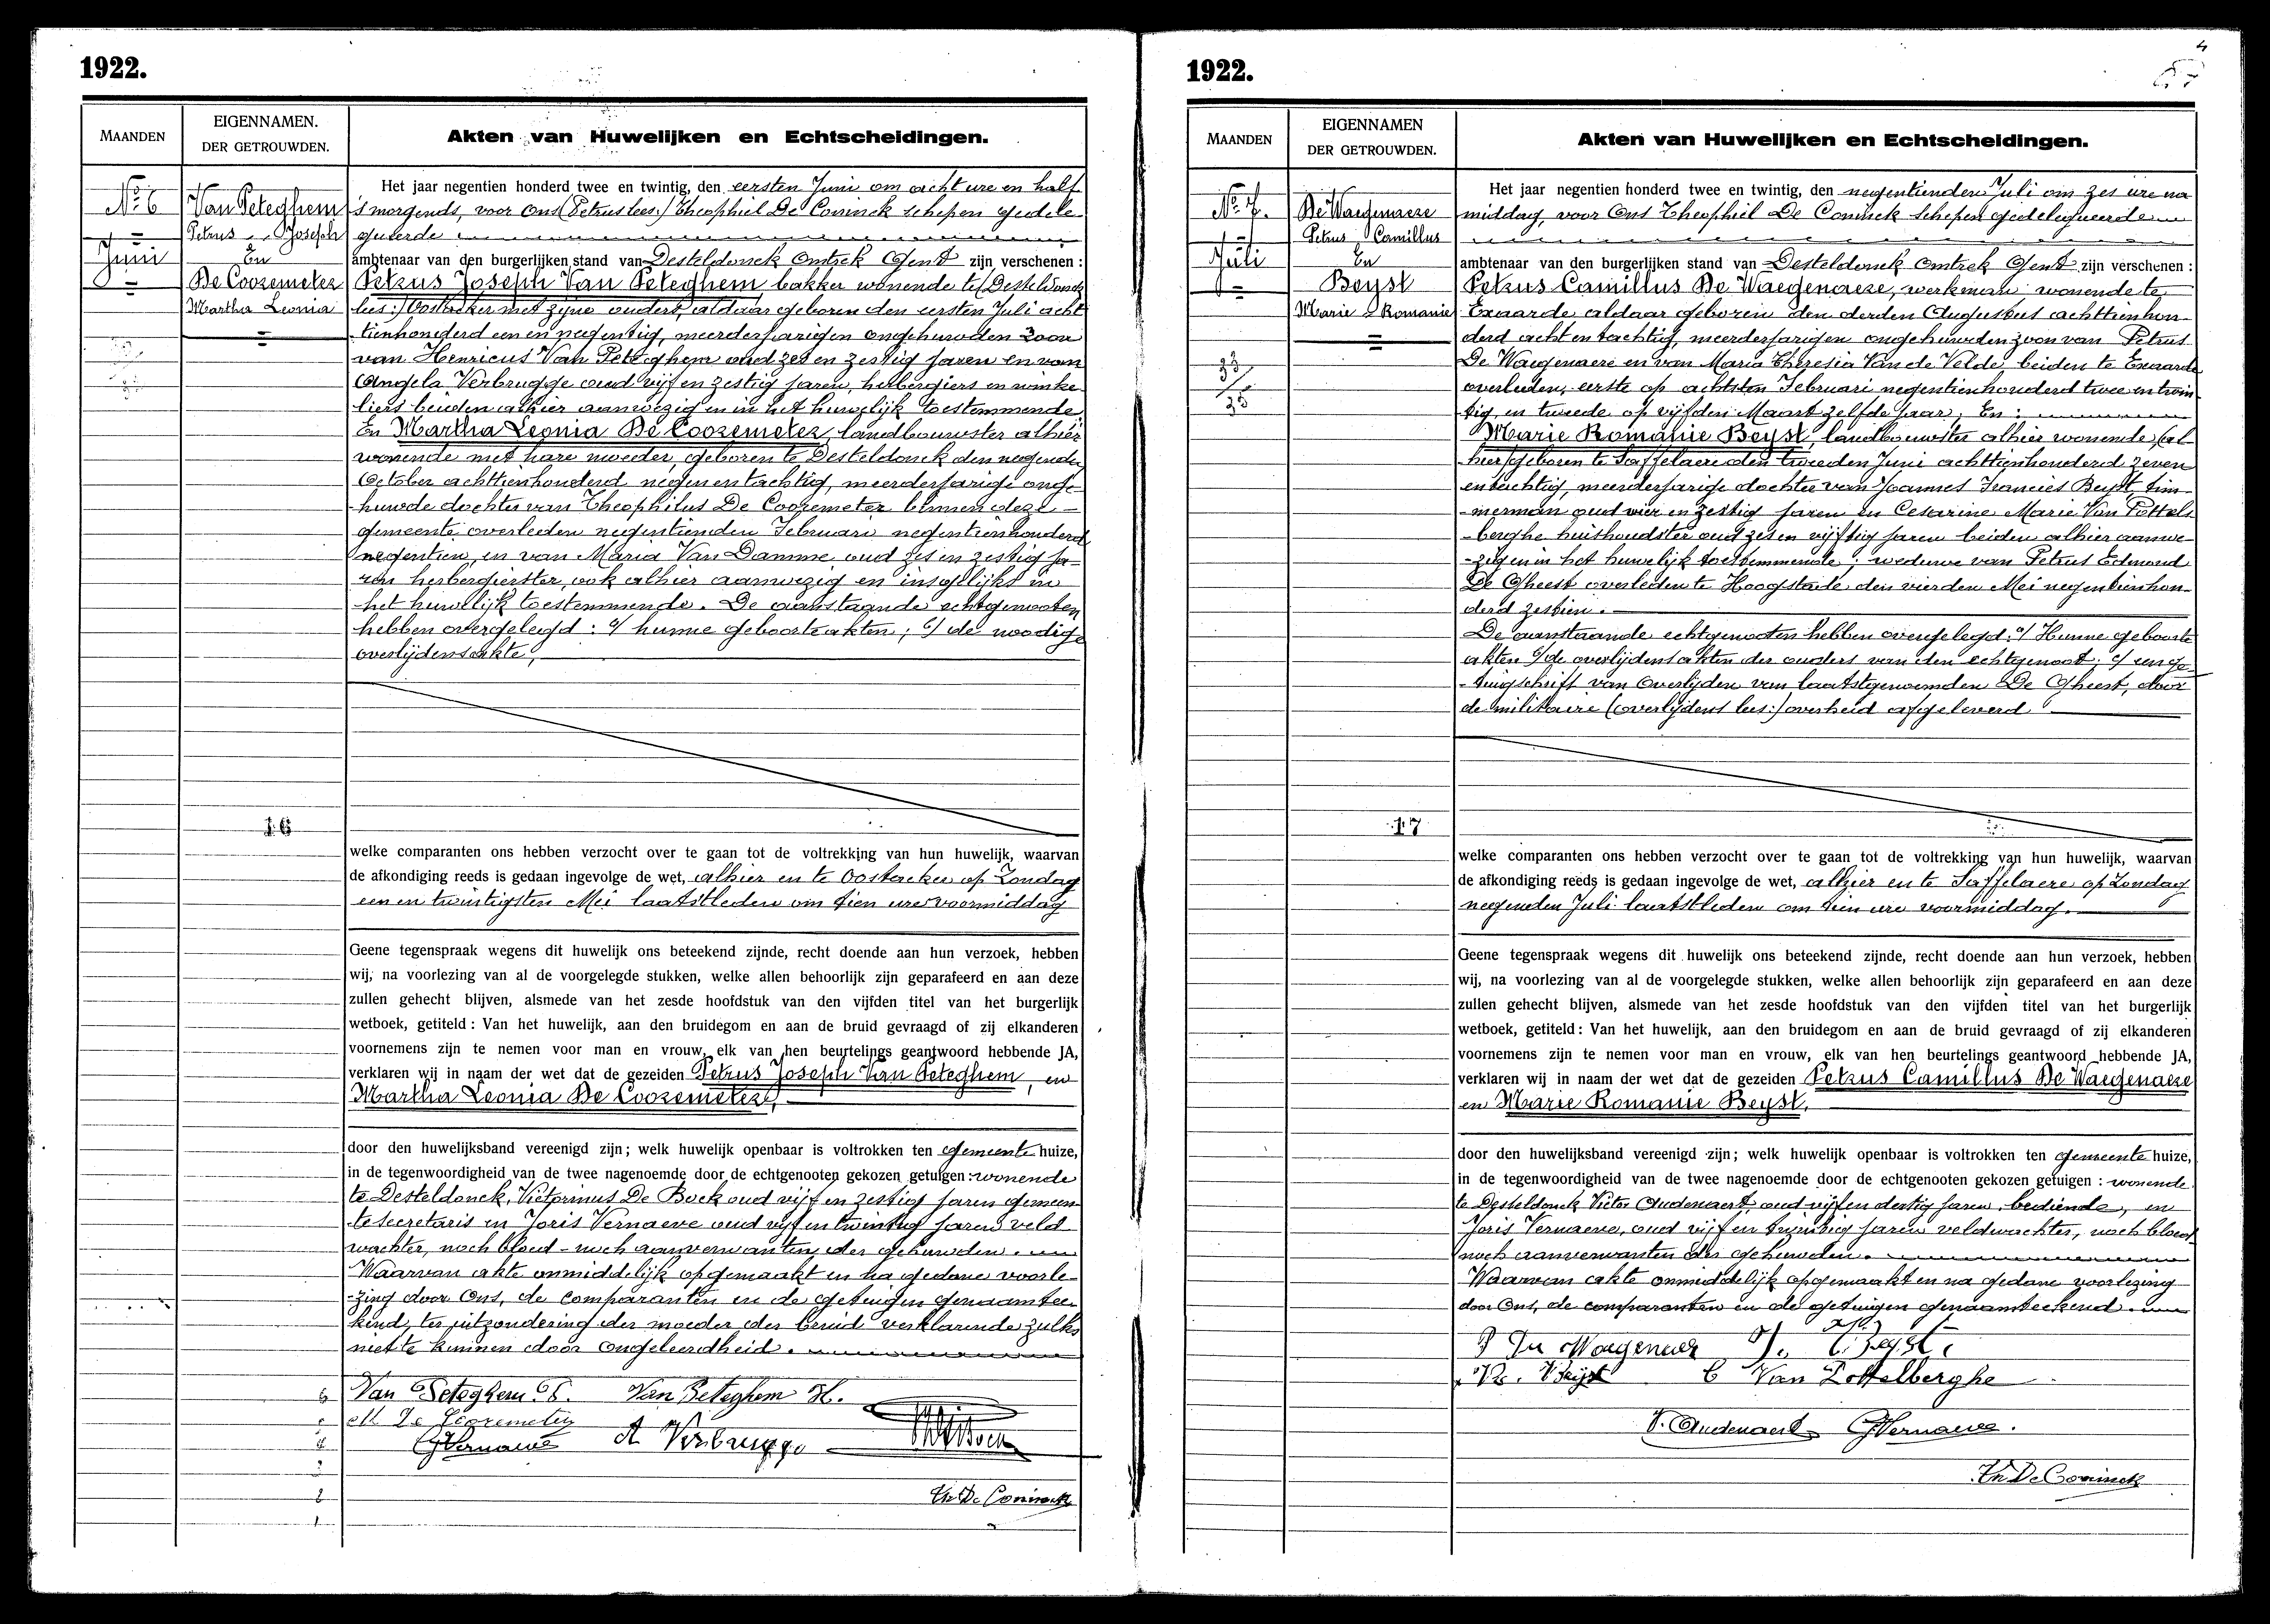 1922.
MAANDEN
EIGENNAMEN.
DER GETROUWDEN.
Akten van Huwelijken en Echtscheidingen.
No. 6
Juni
Van Peteghem
Petrus Joseph
En
De Coozemeter
Martha Leonia
16
Het jaar negentien honderd twee en twintig, den eersten Juni om acht ure en half
's morgends, voor Ons (Petrus lees:) Theophiel De Coninck schepen gedele-
gueerde
ambtenaar van den burgerlijken stand van Desteldonck Omtrek Gent zijn verschenen :
Petrus Joseph Van Peteghem bakker wonende te (Desteldonck
lees:) Oostacker met zijne ouders, aldaar geboren den eersten Juli acht
tienhonderd een en negentig, meerderjarigen ongehuwden zoon
van Henricus Van Peteghem oud zes en zestig jaren en van
Angela Verbrugge oud vijf en zestig jaren, herbergiers en winke-
liers beiden alhier aanwezig en in het huwelijk toestemmende.
En Martha Leonia De Coozemeter, landbouwster alhier
wonende met hare moeder, geboren te Desteldonck den negenden
October achttienhonderd negen en tachtig, meerderjarige onge-
huwde dochter van Theophilus De Coozemeter binnen deze
gemeente overleden negentienden Februari negentienhonderd
negentien, en van Maria Van Damme oud zes en zestig ja-
ren herbergierster, ook alhier aanwezig en insgelijks in
het huwelijk toestemmende. De aanstaande echtgenooten
hebben overgelegd : a/ hunne geboorteakten ; b/ de noodige
overlijdensakte,
welke comparanten ons hebben verzocht over te gaan tot de voltrekking van hun huwelijk, waarvan
de afkondiging reeds is gedaan ingevolge de wet, alhier en te Oostacker op Zondag
een en twintigsten Mei laatstleden om tien ure voormiddag
Geene tegenspraak wegens dit huwelijk ons beteekend zijnde, recht doende aan hun verzoek, hebben
wij, na voorlezing van al de voorgelegde stukken, welke allen behoorlijk zijn geparafeerd en aan deze
zullen gehecht blijven, alsmede van het zesde hoofdstuk van den vijfden titel van het burgerlijk
wetboek, getiteld : Van het huwelijk, aan den bruidegom en aan de bruid gevraagd of zij elkanderen
voornemens zijn te nemen voor man en vrouw, elk van hen beurtelings geantwoord hebbende JA,
verklaren wij in naam der wet dat de gezeiden Petrus Joseph Van Peteghem, en
Martha Leonia De Coozemeter,
door den huwelijksband vereenigd zijn ; welk huwelijk openbaar is voltrokken ten gemeente huize,
in de tegenwoordigheid van de twee nagenoemde door de echtgenooten gekozen getuigen : wonende
te Desteldonck, Victorinus De Bock oud vijf en zestig jaren gemeen-
tesecretaris en Joris Vernaeve oud vijf en twintig jaren veld
wachter, noch bloed- noch aanverwanten der gehuwden.
Waarvan akte onmiddelijk opgemaakt en na gedane voorle-
zing door Ons, de comparanten en de getuigen genaamtee-
kend, ter uitzondering der moeder der bruid verklarende zulks
niet te kunnen door ongeleerdheid.
Van Peteghem P. Van Peteghem H.
M De Coozemeter
GVernaeve A Verbrugge
Th. De Coninck
1922.
4
MAANDEN
EIGENNAMEN
DER GETROUWDEN.
Akten van Huwelijken en Echtscheidingen.
No. 7.
Juli
33/35
De Waegenaere
Petrus Camillus
En
Beyst
Marie Romanie
17
Het jaar negentien honderd twee en twintig, den negentienden Juli om zes ure na
middag, voor Ons Theophiel De Coninck Schepen gedelegueerde
ambtenaar van den burgerlijken stand van Desteldonck Omtrek Gent zijn verschenen :
Petrus Camillus De Waegenaere, werkman wonende te
Exaarde aldaar geboren den derden Augustus achttienhon-
derd acht en tachtig, meerderjarigen ongehuwden zoon van Petrus
De Waegenaere en van Maria Theresia Van de Velde, beiden te Exaarde
overleden, eerste op achtsten Februari negentienhonderd twee en twin-
tig, en tweede op vijfden Maart zelfde jaar ; En :
Marie Romanie Beyst, landbouwster alhier wonende, (al-
hier) geboren te Saffelaere den tweeden Juni achttienhonderd zeven
en tachtig, meerderjarige dochter van Joannes Francies Beyst, tim-
merman oud vier en zestig jaren en Cesarine Marie Van Pottels-
berghe huishoudster oud zes en vijftig jaren beiden alhier aanwe-
zig en in het huwelijk toestemmende ; weduwe van Petrus Edmond
De Gheest overleden te Hoogstade den vierden Mei negentienhon-
derd zestien.
De aanstaande echtgenooten hebben overgelegd : a/ Hunne geboorte
akten b/ de overlijdensakten der ouders van den echtgenoot ; c/ een ge-
tuigschrift van overlijden van laatstgenoemden De Gheest, door
de militaire (overlijdens lees:) overheid afgeleverd
welke comparanten ons hebben verzocht over te gaan tot de voltrekking van hun huwelijk, waarvan
de afkondiging reeds is gedaan ingevolge de wet, alhier en te Saffelaere op Zondag
negenden Juli laatstleden om tien ure voormiddag.
Geene tegenspraak wegens dit huwelijk ons beteekend zijnde, recht doende aan hun verzoek, hebben
wij, na voorlezing van al de voorgelegde stukken, welke allen behoorlijk zijn geparafeerd en aan deze
zullen gehecht blijven, alsmede van het zesde hoofdstuk van den vijfden titel van het burgerlijk
wetboek, getiteld : Van het huwelijk, aan den bruidegom en aan de bruid gevraagd of zij elkanderen
voornemens zijn te nemen voor man en vrouw, elk van hen beurtelings geantwoord hebbende JA,
verklaren wij in naam der wet dat de gezeiden Petrus Camillus De Waegenaere
en Marie Romanie Beyst,
door den huwelijksband vereenigd zijn ; welk huwelijk openbaar is voltrokken ten gemeente huize,
in de tegenwoordigheid van de twee nagenoemde door de echtgenooten gekozen getuigen : wonende
te Desteldonck Victor Oudenaert, oud vijf en dertig jaren, bediende, en
Joris Vernaeve, oud vijf en twintig jaren veldwachter, noch bloed
noch aanverwanten der gehuwden.
Waarvan akte onmiddelijk opgemaakt en na gedane voorlezing
door Ons, de comparanten en de getuigen genaamteekend.
Beyst
C Van Pottelberghe
V. Oudenaert GVernaeve.
Th De Coninck